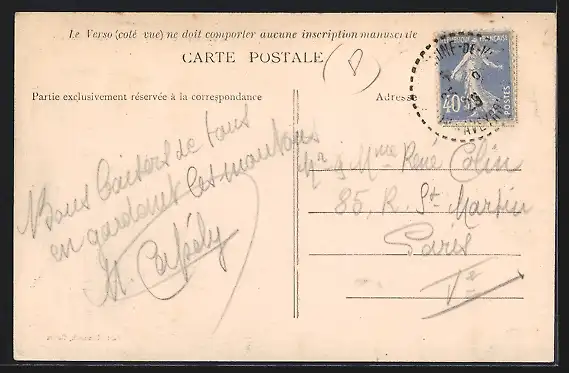 Le Verso (côté vue) ne doit comporter aucune inscription manuscrite
CARTE POSTALE
Partie exclusivement réservée à la correspondance
Adresse
RÉPUBLIQUE FRANÇAISE
40c
POSTES
AVEYRON
Bons baisers de tous
en gardant les moutons
M.
Mr & Mme René Colin
85, R. St. Martin
Paris